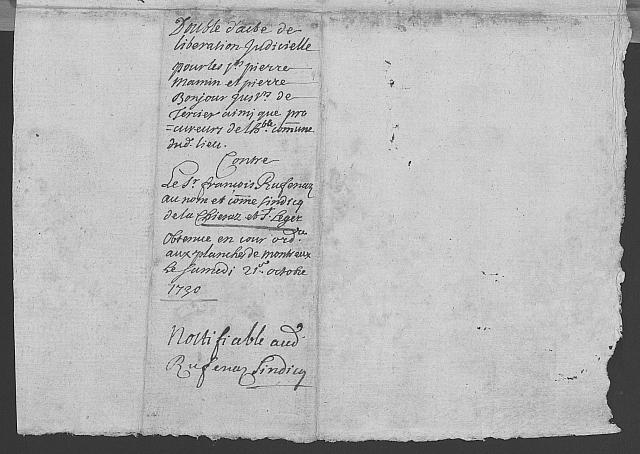 Double d'acte de
liberation Judicielle
pour les Srs pierre
Mamin et pierre
Bonjour de
ainsi que pro
=cureurs de l'hble comune
dud. lieu.
Contre
Le Sr. françois Rufenaz
au nom et come sindicq
de la Chiesaz et St. Leger
obtenue en cour ordre.
aux planches de montreux
Le samedi 21e. octobre
1730
Nottifiable aud.
Rufenaz sindicq